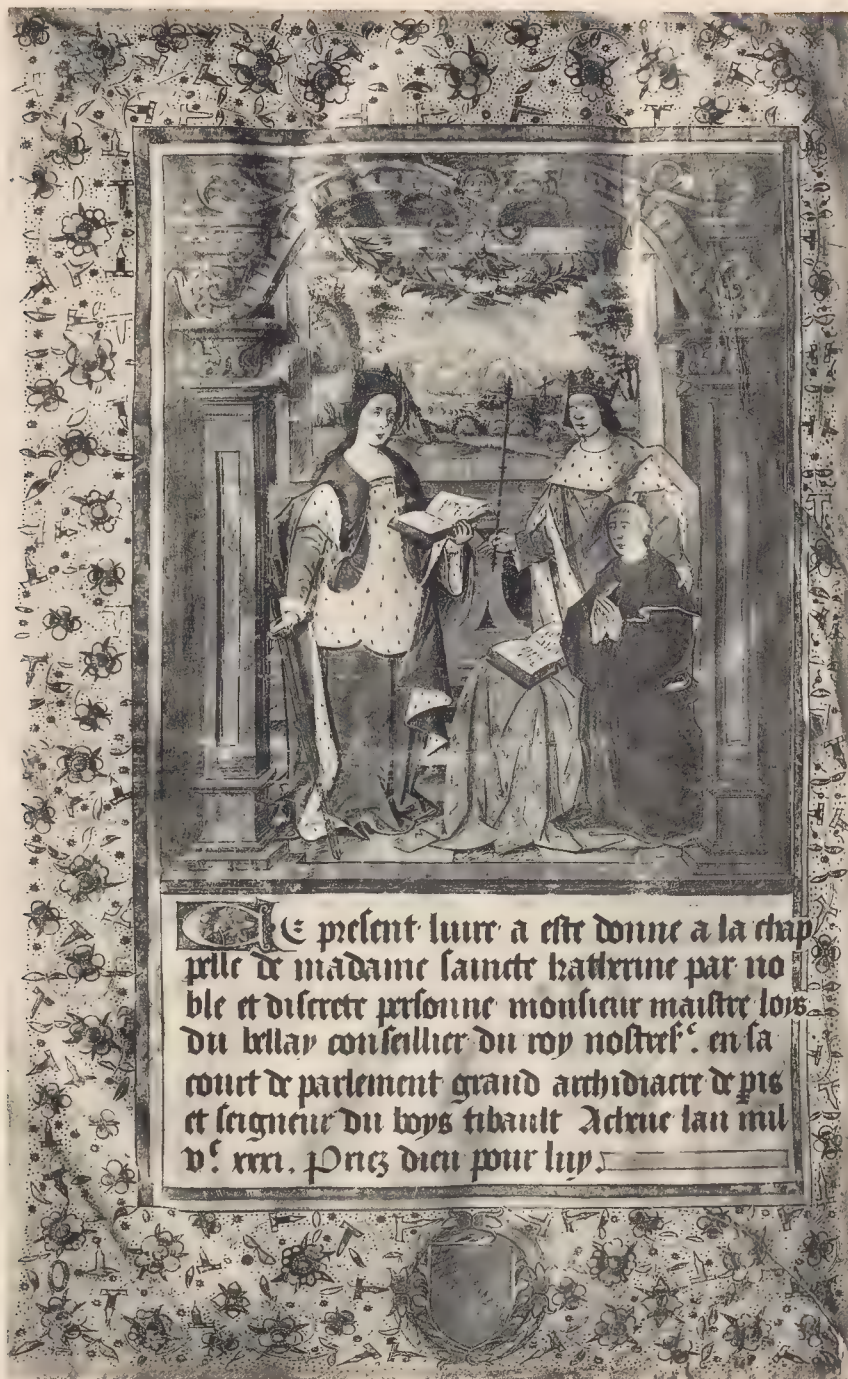 Ce present liure a este donne a la chap
pelle de madame saincte katherine par no
ble et discrete personne monsieur maistre loys
du bellay conseillier du roy nostre sᶜ. en sa
court de parlement grand archidiacre de p̲i̲s
et seigneur du boys tibault Acheue lan mil
vᶜ. xxxi. Priez dieu pour luy.